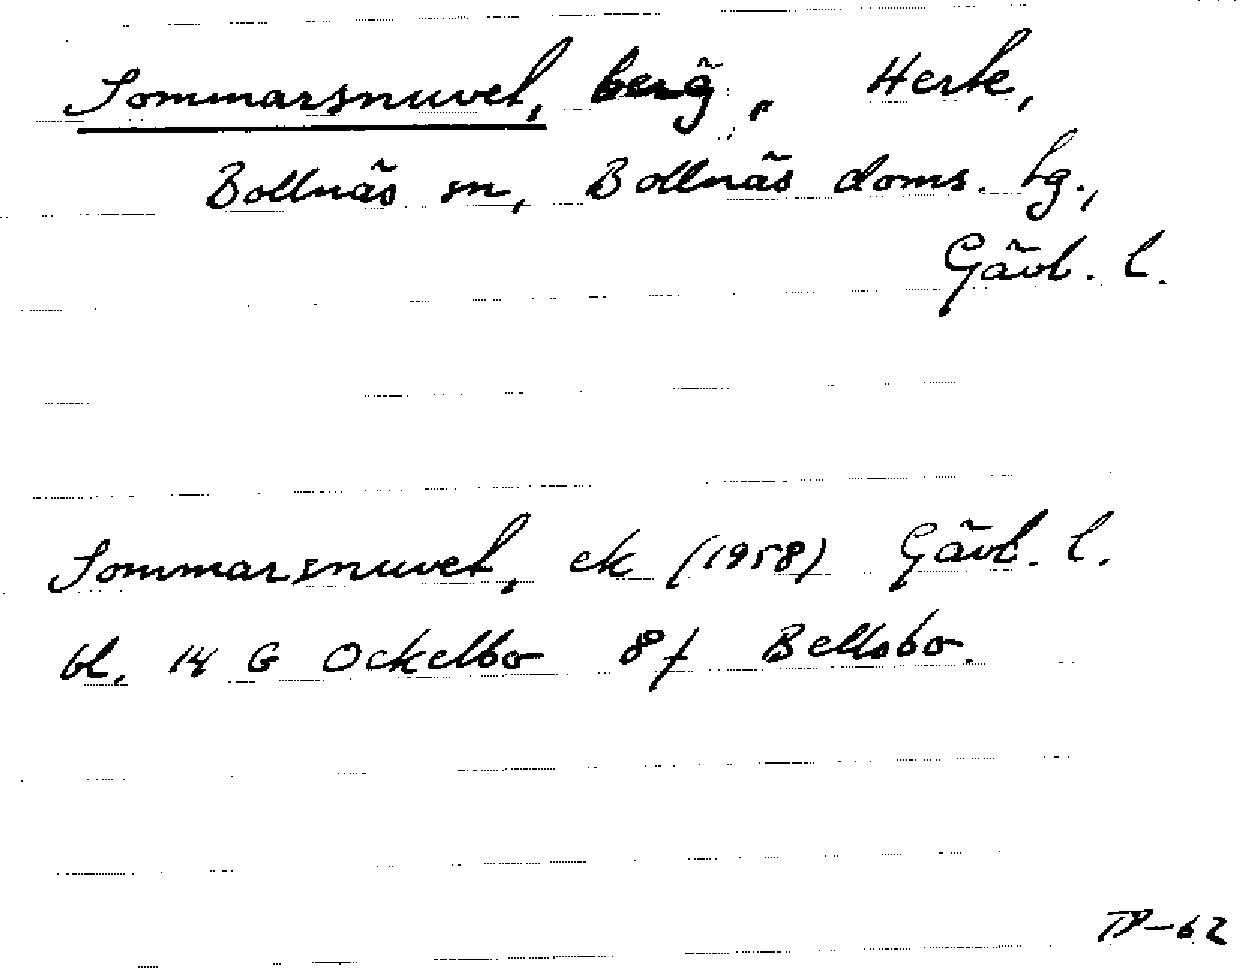 Sommarsnuvel, berg, Herte,
Bollnäs sn, Bollnäs doms. hg.,
Gävl. l.
Sommarsnuvel, ek (1958) Gävl. l.
bl. 14 G Ockelbo 8f Bellsbo.
TP-62